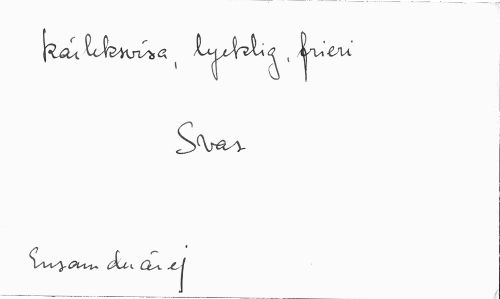 Kärleksvisa, lycklig, frieri
Svar
Ensam du är ej